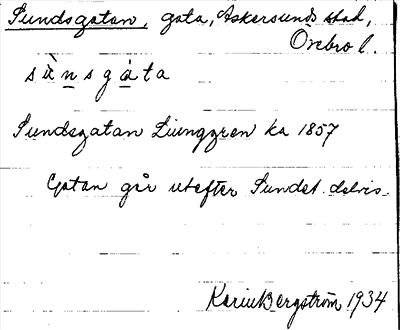 Sundsgatan, gata, Askersunds stad,
Örebro l.
sùnsgàta
Sundsgatan Ljunggren ka 1857
Gatan går utefter Sundet delvis.
Karin Bergström 1934